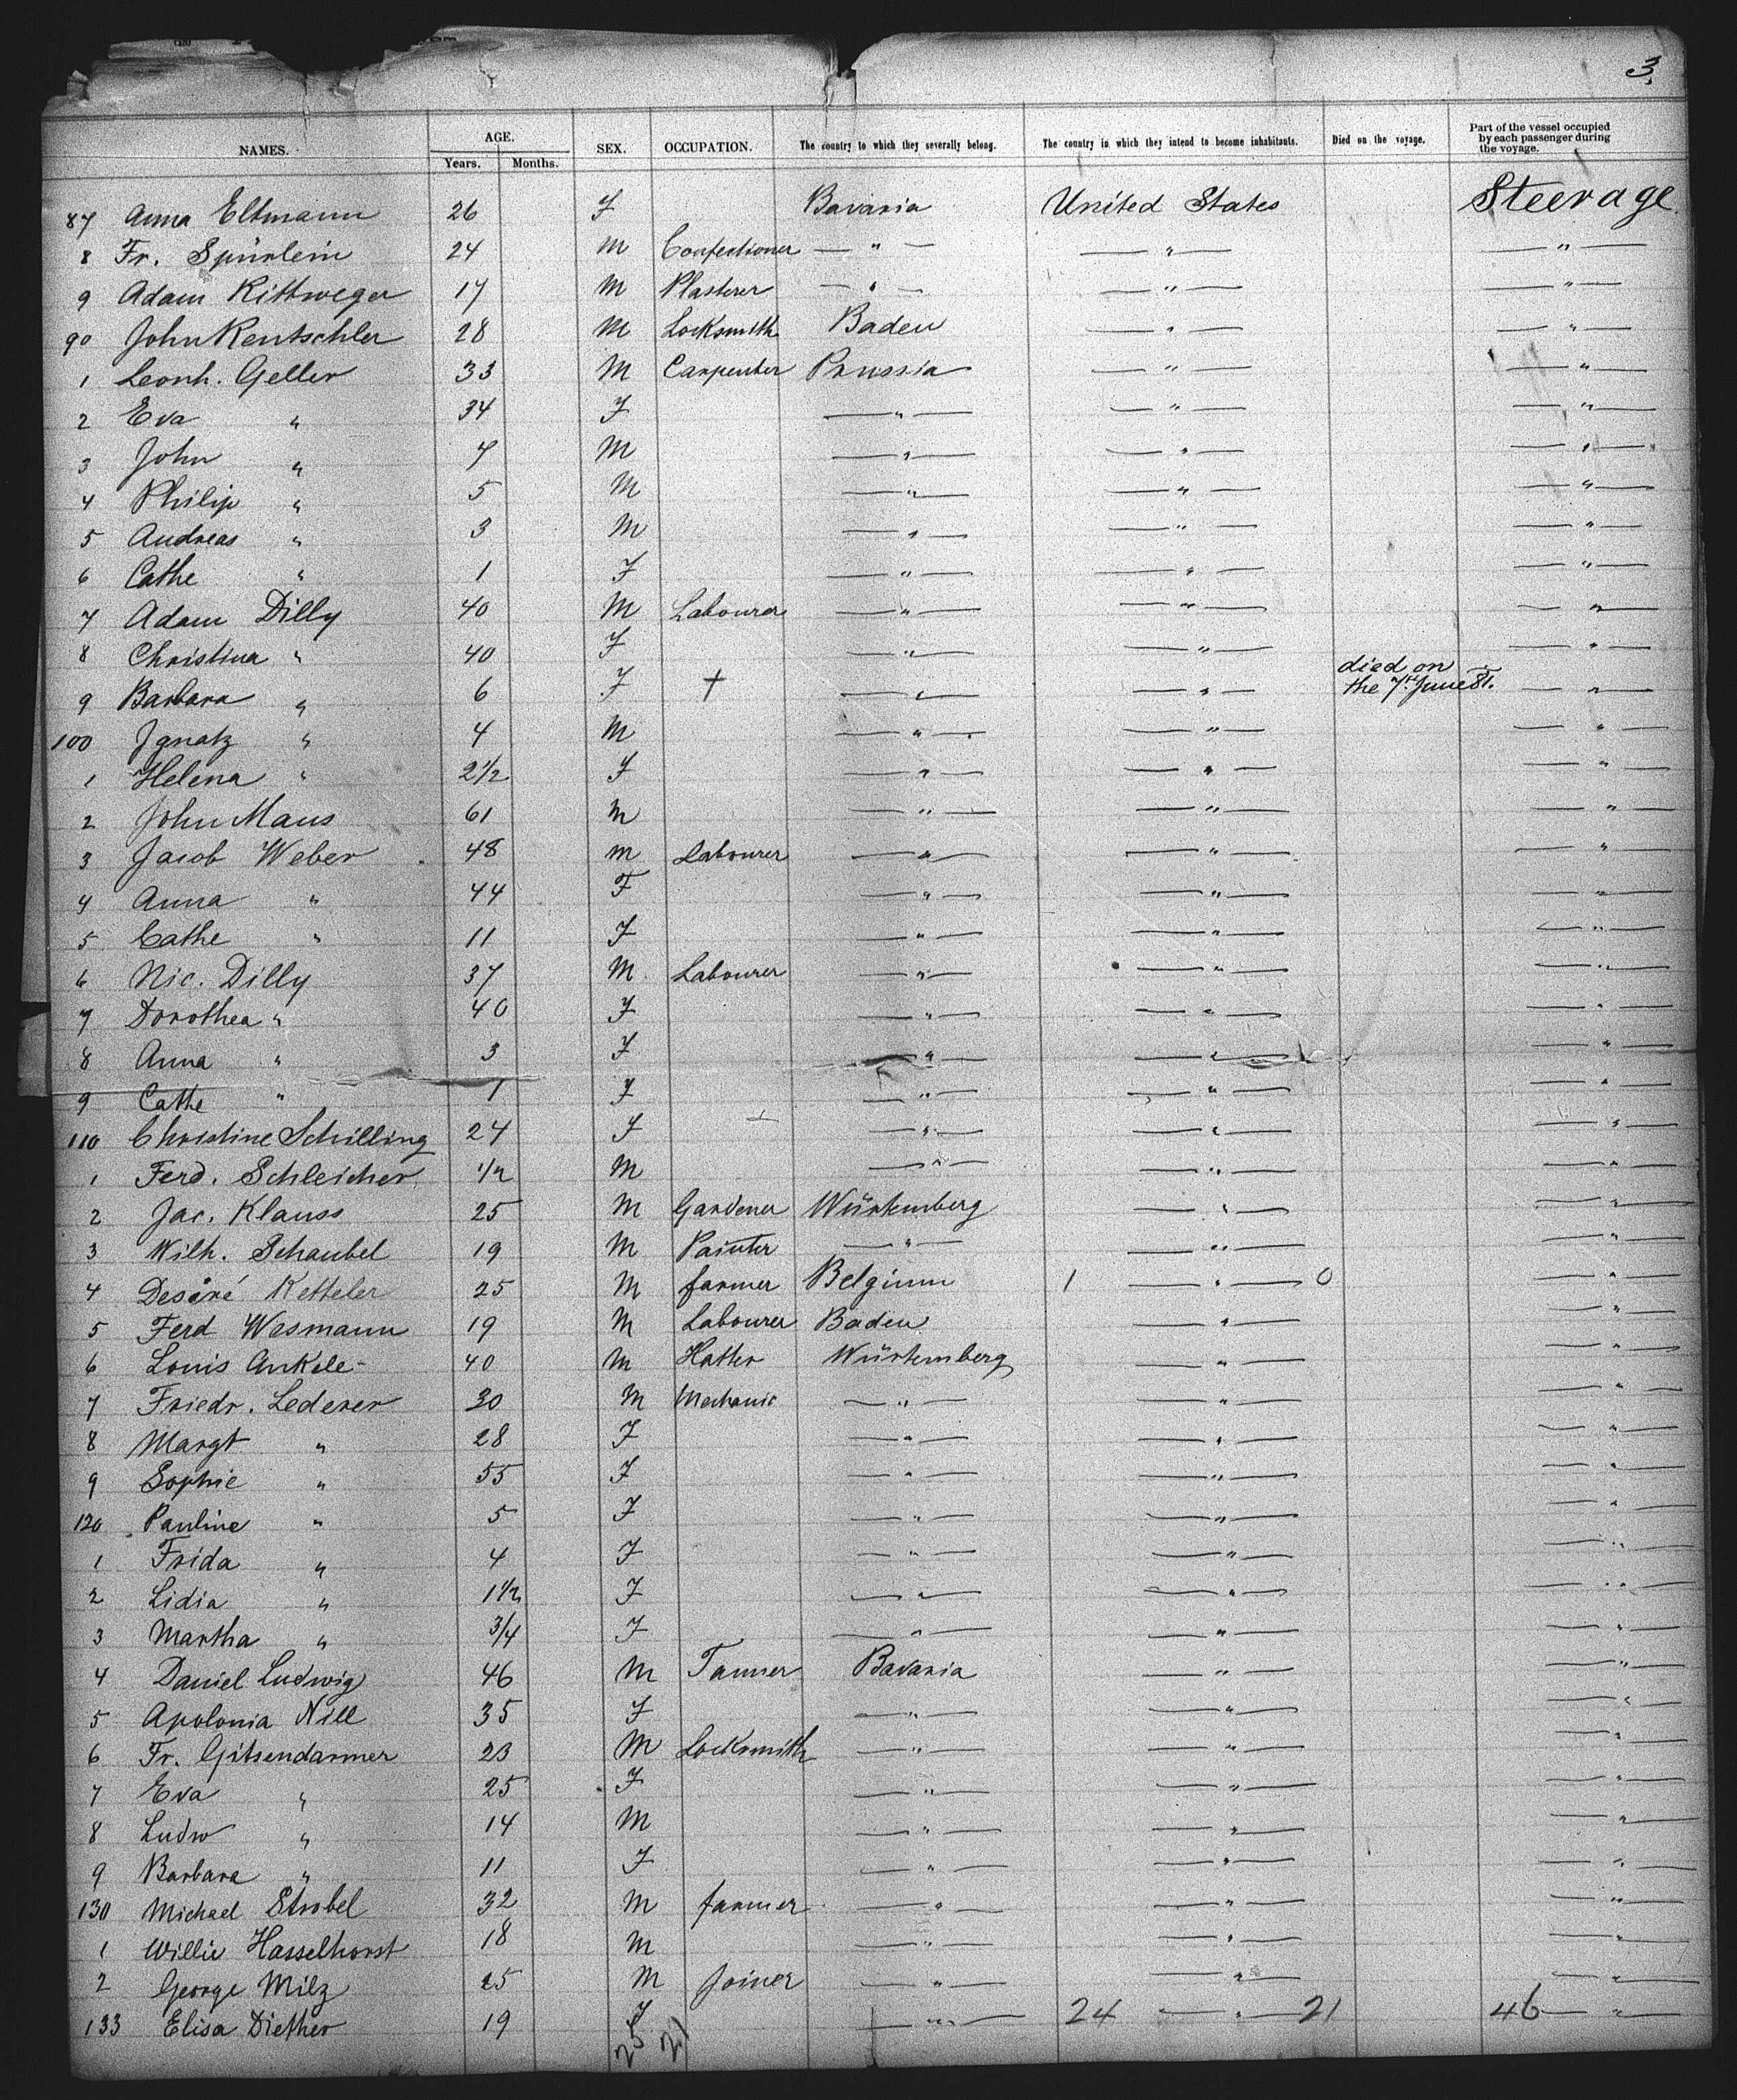 3
NAMES. AGE. SEX. OCCUPATION. The country to which they severally belong. The country in which they intend to become inhabitants. Died on the voyage. Part of the vessel occupied by each passenger during the voyage.
Years. Months.
87 Anna Eltmann 26 F Bavaria United States Steerage
8 Fr. Spürlein 24 M Confectioner — " — — " — — " —
9 Adam Kittweger 17 M Plasterer — " — — " — — " —
90 John Rentschler 28 M Locksmith Baden — " — — " —
1 Leonh. Geller 33 M Carpenter Prussia — " — — " —
2 Eva " 34 F — " — — " — — " —
3 John " 7 M — " — — " — — " —
4 Philip " 5 M — " — — " — — " —
5 Andreas " 3 M — " — — " — — " —
6 Cathe " 1 F — " — — " — — " —
7 Adam Dilly 40 M Labourer — " — — " — — " —
8 Christina " 40 F — " — — " — — " —
9 Barbara " 6 F † — " — — " — died on the 7th June 81. — " —
100 Ignatz " 4 M — " — — " — — " —
1 Helena " 2 1/2 F — " — — " — — " —
2 John Maus 61 M — " — — " — — " —
3 Jacob Weber 48 M Labourer — " — — " — — " —
4 Anna " 44 F — " — — " — — " —
5 Cathe " 11 F — " — — " — — " —
6 Nic. Dilly 37 M Labourer — " — — " — — " —
7 Dorothea " 40 F — " — — " — — " —
8 Anna " 3 F — " — — " — — " —
9 Cathe " 1 F — " — — " — — " —
110 Christine Schilling 24 F — " — — " — — " —
1 Ferd. Schleicher 1/2 M — " — — " — — " —
2 Jac. Klauss 25 M Gardener Würtemberg — " — — " —
3 Wilh. Schaubel 19 M Painter — " — — " — — " —
4 Desiré Ketteler 25 M farmer Belgium 1 — " — 0 — " —
5 Ferd Wesmann 19 M Labourer Baden — " — — " —
6 Louis Ankele 40 M Hatter Würtemberg — " — — " —
7 Friedr. Lederer 30 M Mechanic — " — — " — — " —
8 Margt " 28 F — " — — " — — " —
9 Sophie " 55 F — " — — " — — " —
120 Pauline " 5 F — " — — " — — " —
1 Frida " 4 F — " — — " — — " —
2 Lidia " 1 1/2 F — " — — " — — " —
3 Martha " 3/4 F — " — — " — — " —
4 Daniel Ludwig 46 M Tanner Bavaria — " — — " —
5 Apolonia Nill 35 F — " — — " — — " —
6 Fr. Gitsendarmer 23 M Locksmith — " — — " — — " —
7 Eva " 25 F — " — — " — — " —
8 Ludw " 14 M — " — — " — — " —
9 Barbara " 11 F — " — — " — — " —
130 Michael Strobel 32 M farmer — " — — " — — " —
1 Willie Hasselhorst 18 M — " — — " — — " —
2 George Milz 25 M Joiner — " — — " — — " —
133 Elisa Diether 19 F — " — 24 — " — 21 46 — " —
25 21